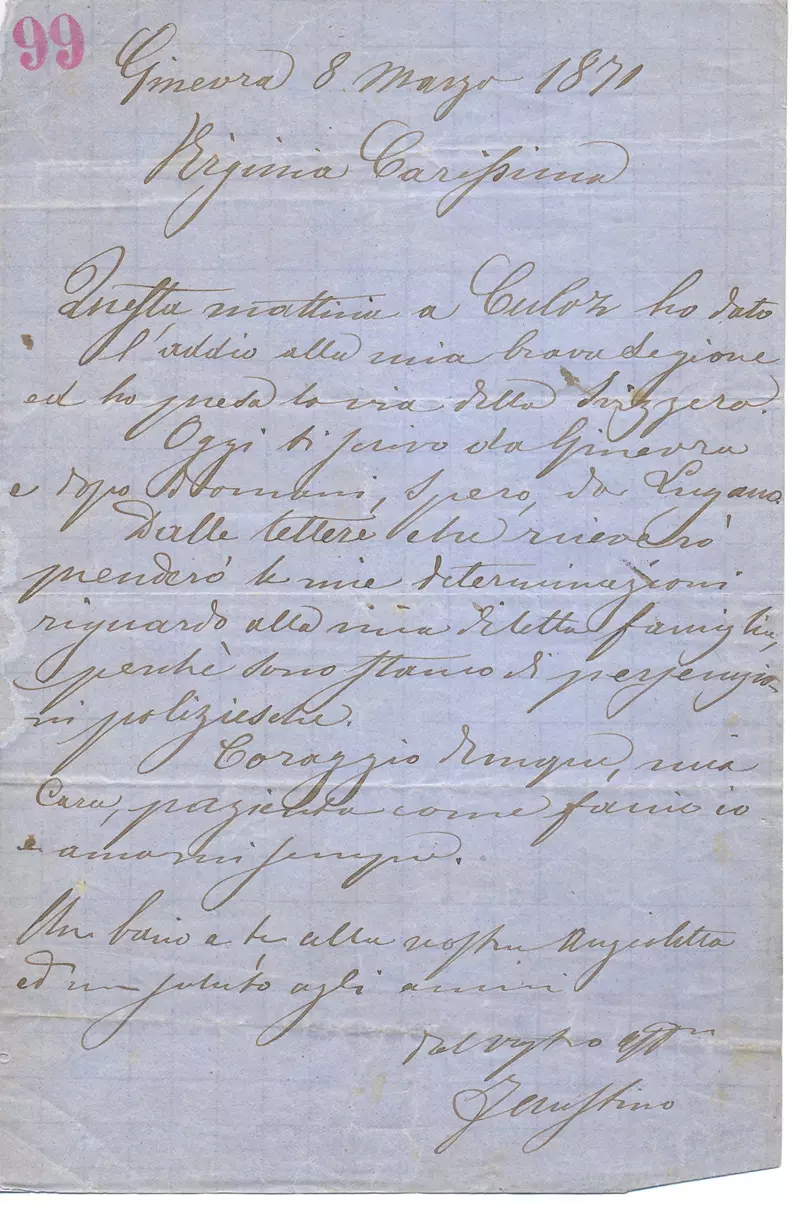 99
Ginevra 8 Marzo 1871
Virginia Carissima
Questa mattina a Culoz ho dato
l'addio alla mia brava Legione
ed ho presa la via della Svizzera.
Oggi ti scrivo da Ginevra
e dopo Domani, spero, da Lugano.
Dalle lettere che riceverò
prenderò le mie determinazioni
riguardo alla mia diletta famiglia,
perchè sono stanco di persecuzio-
ni poliziesche.
Coraggio dunque, mia
Cara, pazienta come faccio io
e amami sempre.
Un bacio a te alla nostra Angioletta
ed un saluto agli amici
dal vostro aff
Faustino